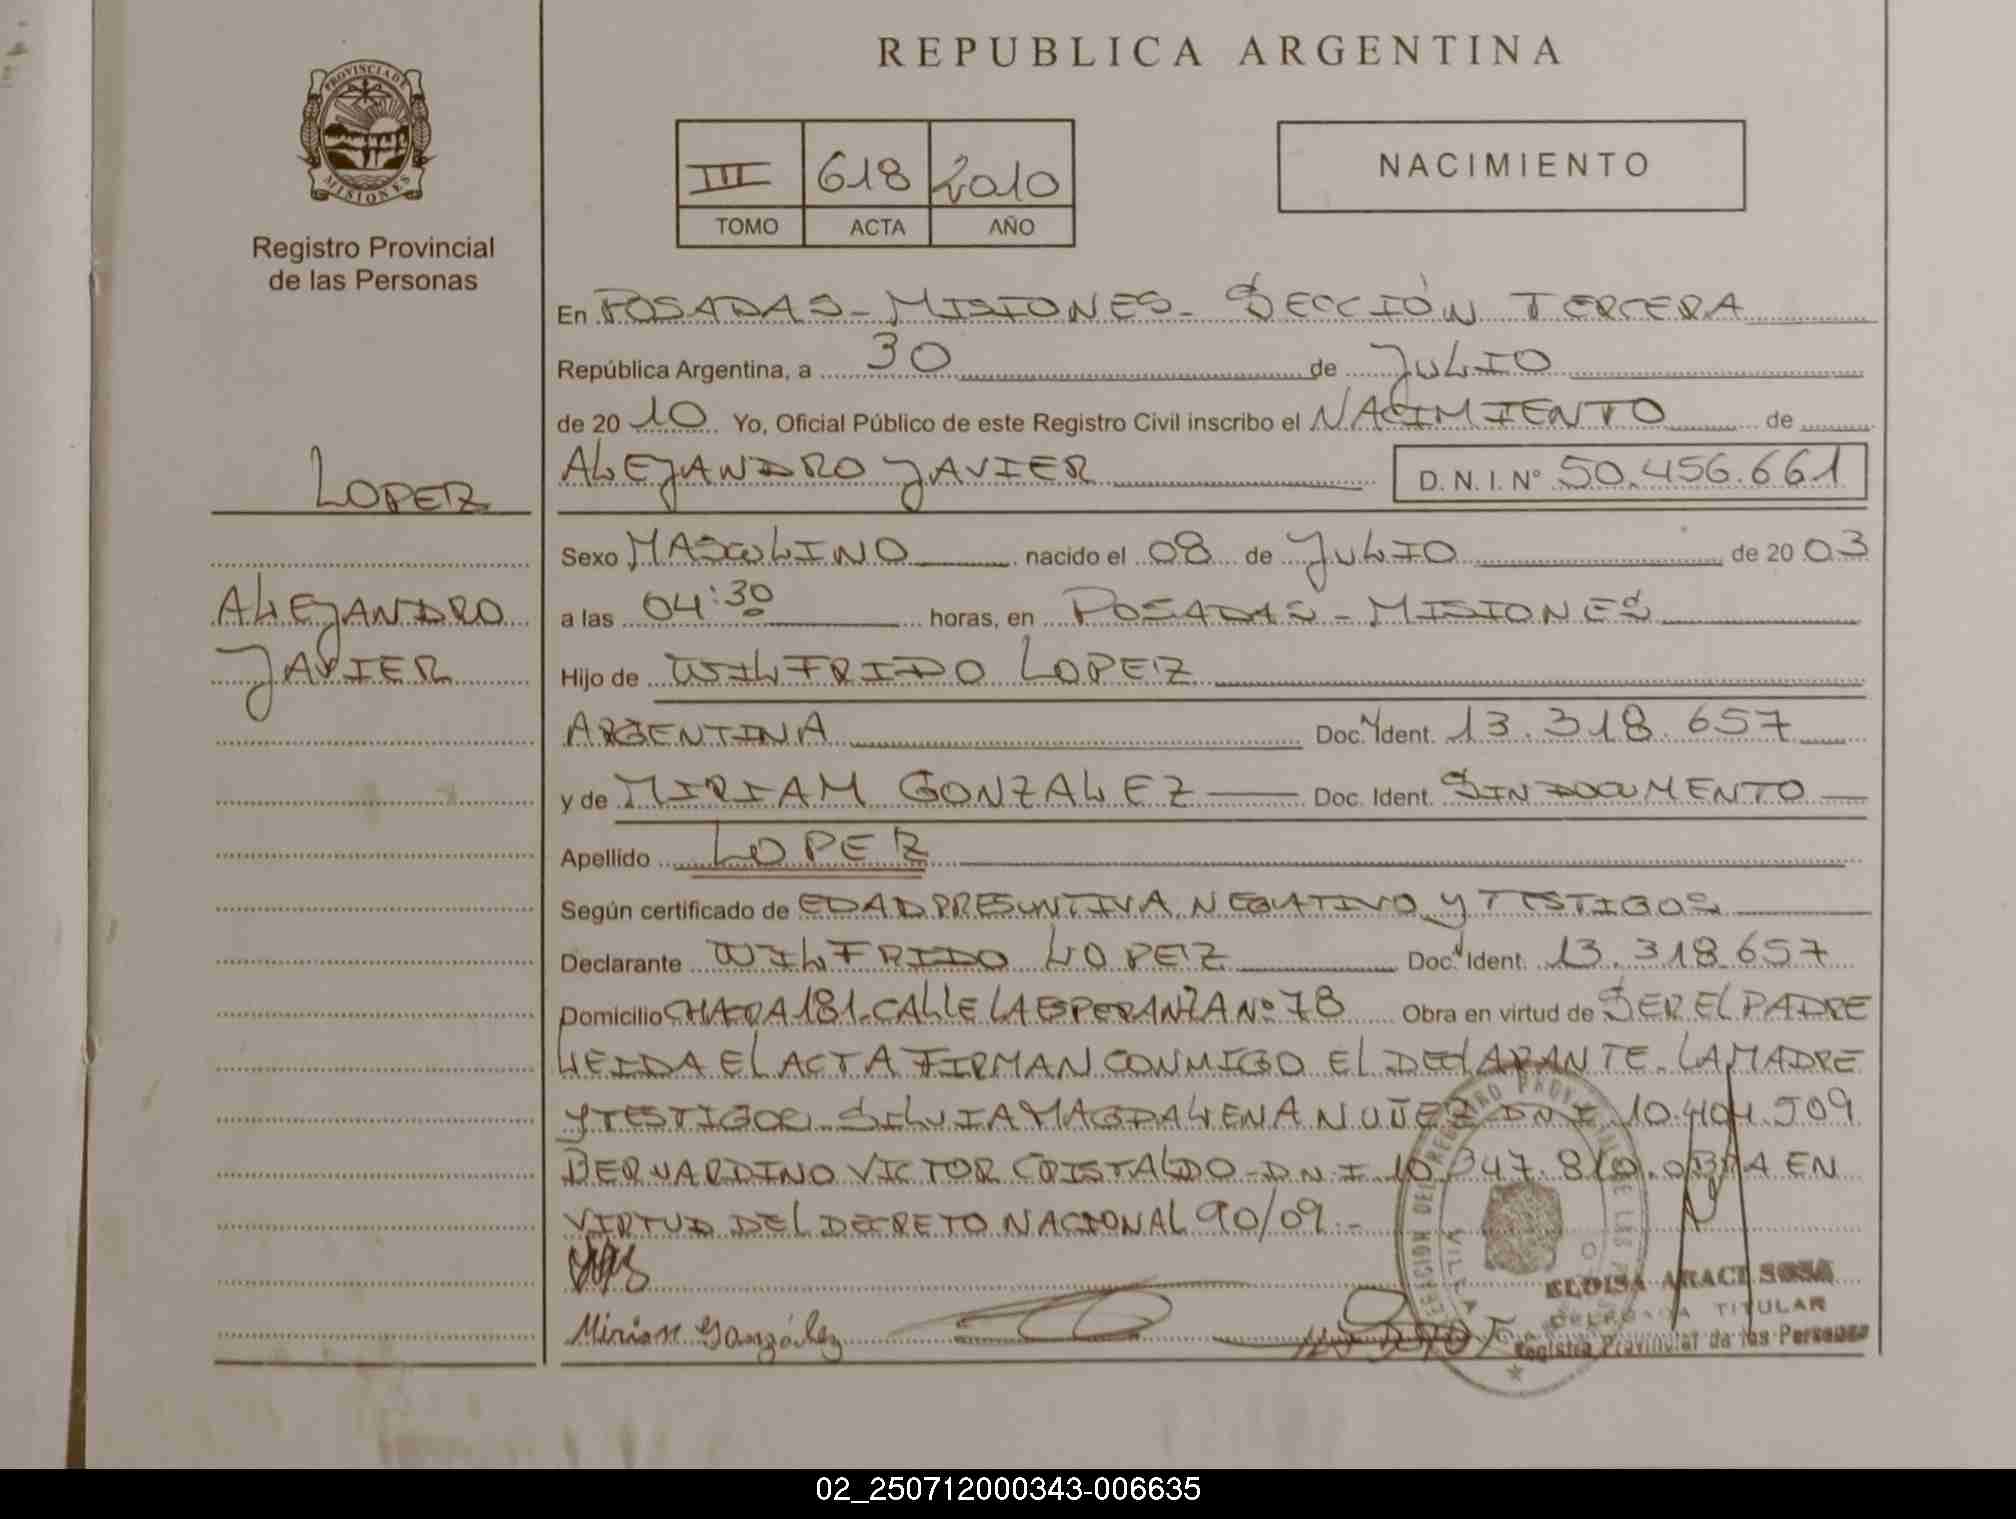 REPUBLICA ARGENTINA
PROVINCIA DE
MISIONES
Registro Provincial
de las Personas
III 618 2010
TOMO ACTA AÑO
NACIMIENTO
En POSADAS - MISIONES - SECCIÓN TERCERA
República Argentina, a 30 de JULIO
de 2010 Yo, Oficial Público de este Registro Civil inscribo el NACIMIENTO de
ALEJANDRO JAVIER D.N.I. Nº 50.456.661
LOPEZ
ALEJANDRO
JAVIER
Sexo MASCULINO nacido el 08 de JULIO de 2003
a las 04:30 horas, en POSADAS - MISIONES
Hijo de WILFRIDO LOPEZ
ARGENTINA Doc. Ident. 13.318.657
y de MIRIAM GONZALEZ Doc. Ident. SIN DOCUMENTO
Apellido LOPEZ
Según certificado de EDAD PRESUNTIVA, NEGATIVO Y TESTIGOS
Declarante WILFRIDO LOPEZ Doc. Ident. 13.318.657
Domicilio CHACRA 181. CALLE LA ESPERANZA Nº 78 Obra en virtud de SER EL PADRE
LEIDA EL ACTA FIRMAN CONMIGO EL DECLARANTE. LA MADRE
Y TESTIGOS SILVIA MAGDALENA NUÑEZ DNI 10.404.509
BERNARDINO VICTOR CRISTALDO - D.N.I 10.347.810. OBRA EN
VIRTUD DEL DECRETO NACIONAL 90/09.-
Miriam González
ELOISA ARACI SOSA
DELEGADA TITULAR
Registro Provincial de las Personas
02_250712000343-006635